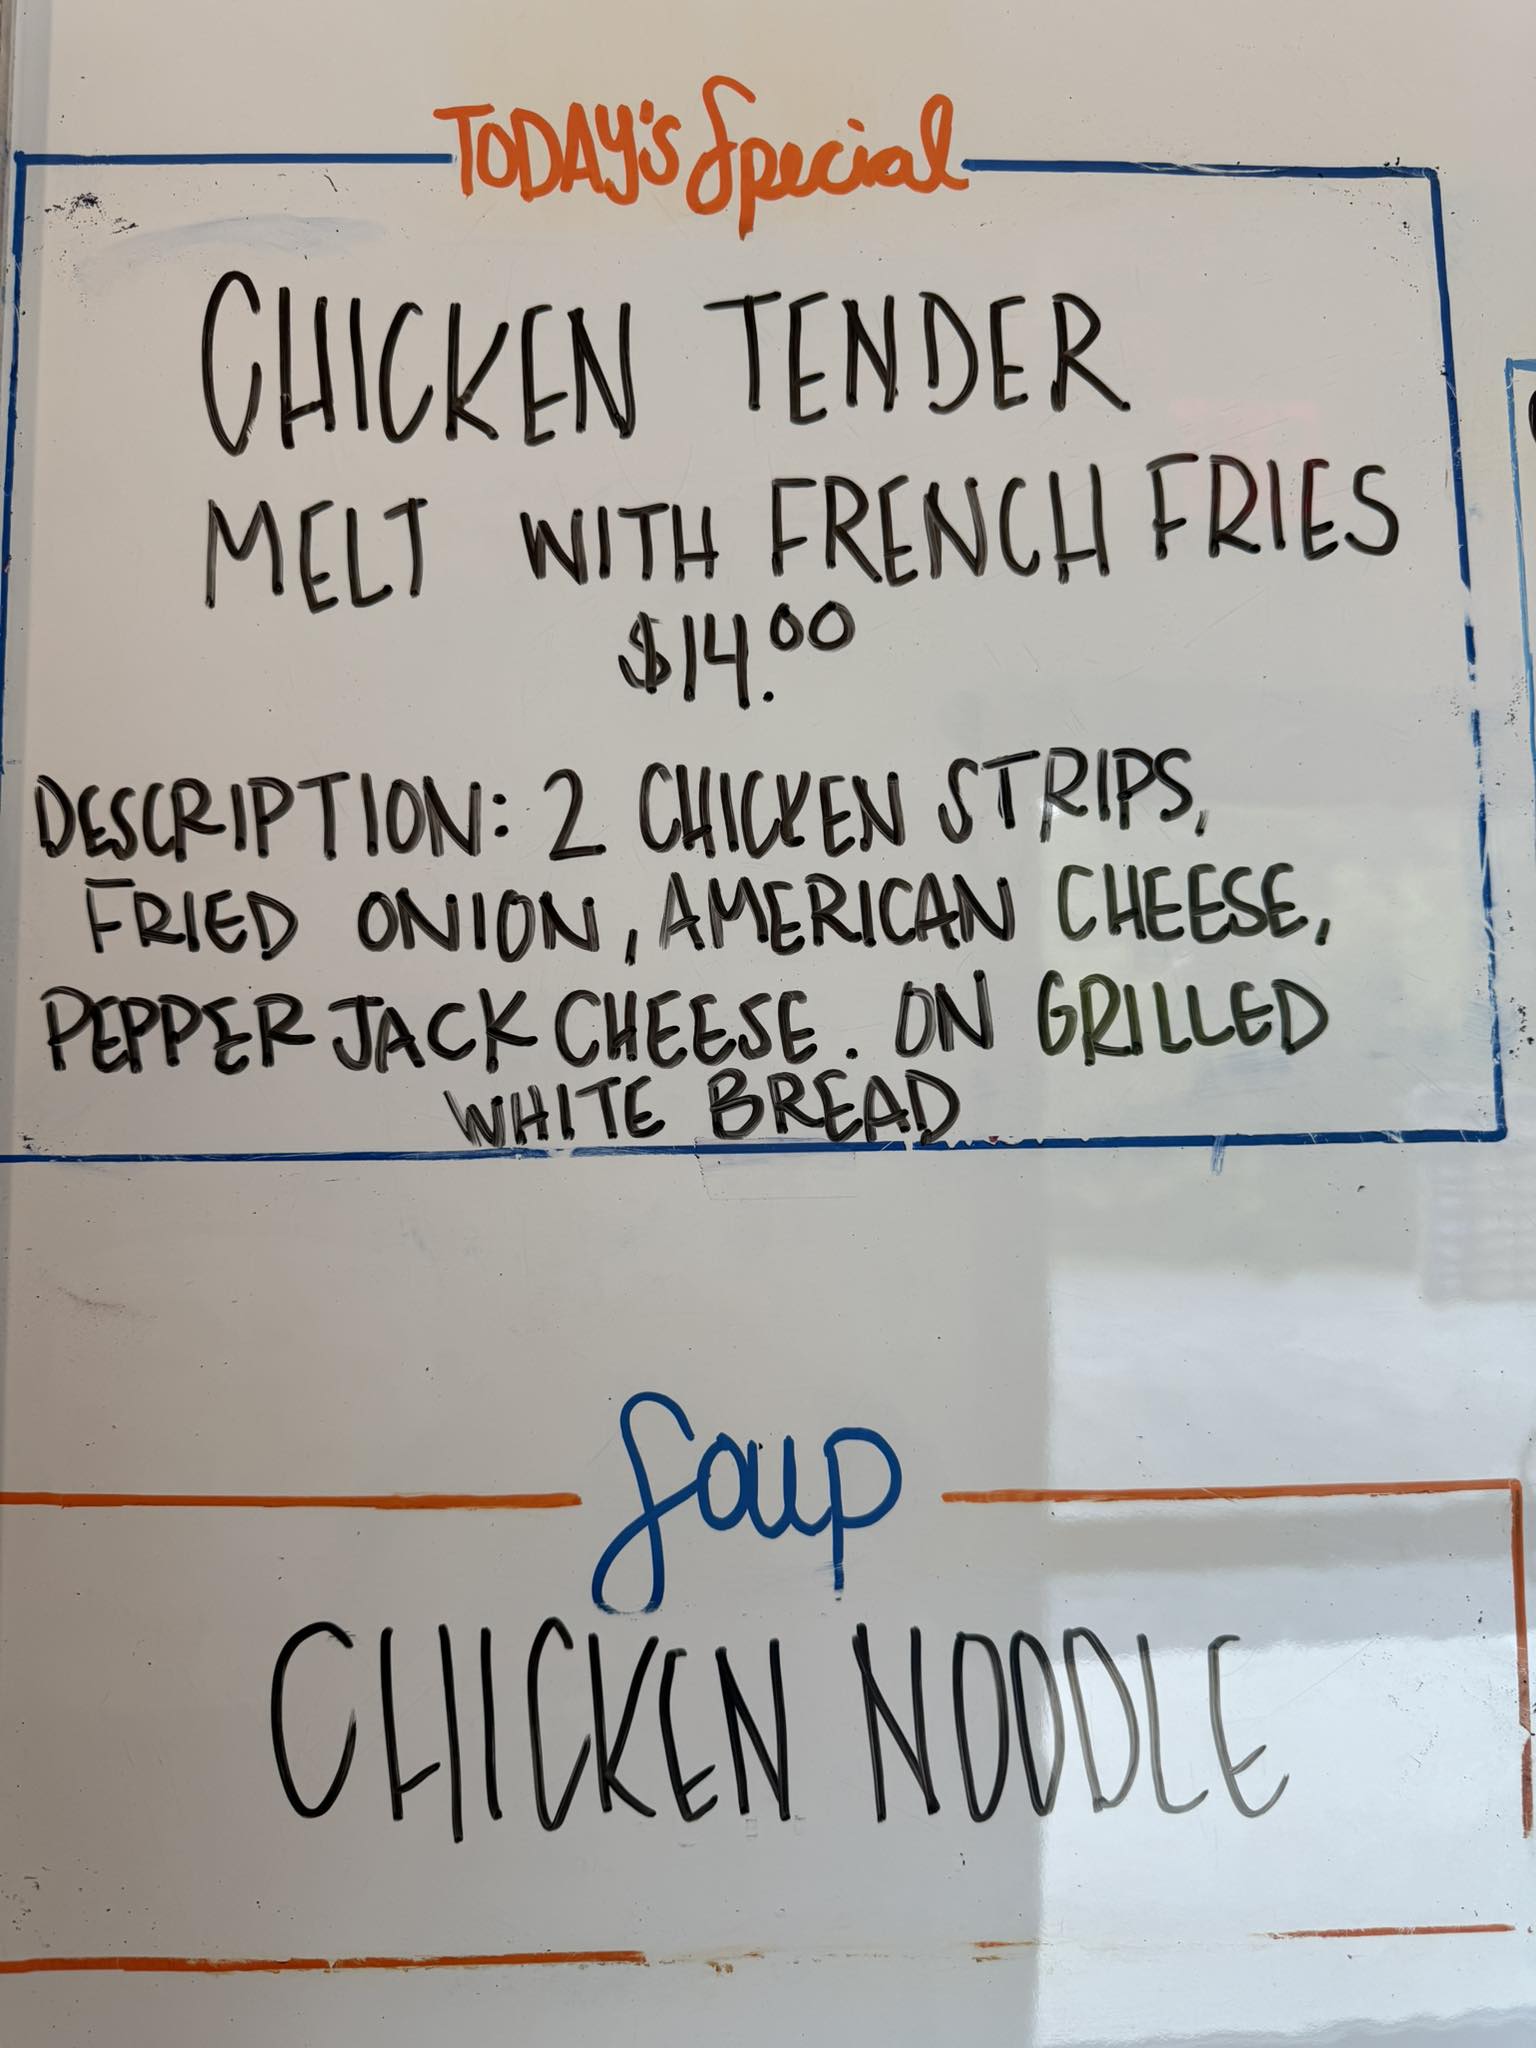 TODAY'S Special
CHICKEN TENDER
MELT WITH FRENCH FRIES
$14.00
DESCRIPTION: 2 CHICKEN STRIPS,
FRIED ONION, AMERICAN CHEESE,
PEPPER JACK CHEESE. ON GRILLED
WHITE BREAD
Soup
CHICKEN NOODLE